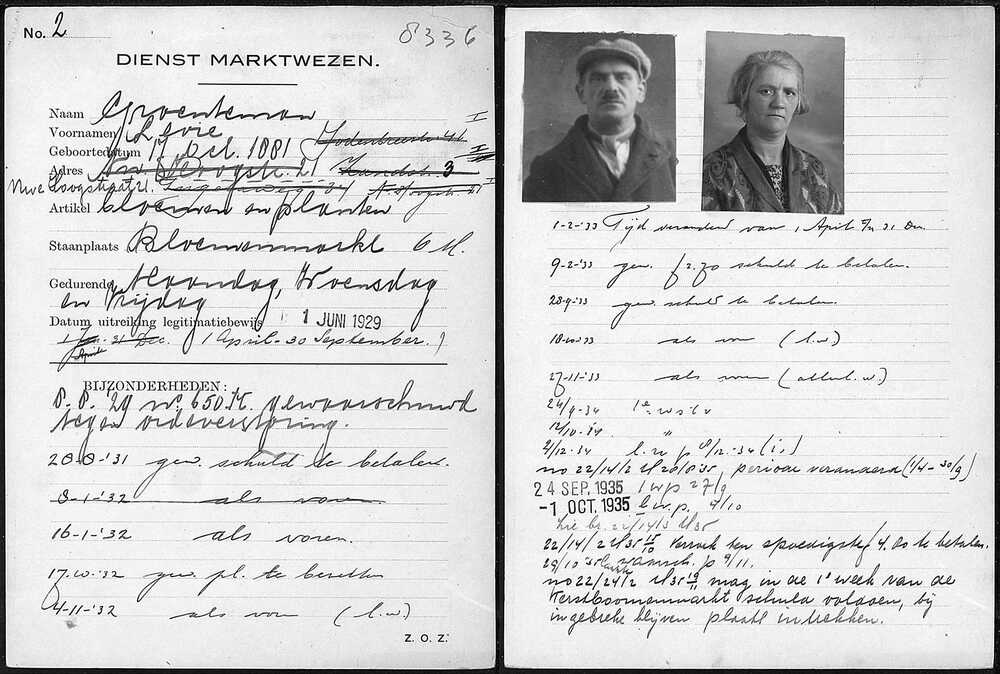 No. 2
8336
DIENST MARKTWEZEN.
Naam Groenteman
Voornamen Levie
Jodenbreestr. 41 I
Geboortedatum 17 Oct. 1881
Adres Nw. Hoogstr. 21 Zandstr. 3
Nwe Hoogstraat 21. 34 N. Hoogstr. 21 I
Artikel bloemen en planten
Staanplaats Bloemenmarkt 6 M.
Gedurende Maandag, Woensdag
en Vrijdag
Datum uitreiking legitimatiebewijs 1 JUNI 1929
1 Jan. - 31 Dec. 1 April - 30 September.
April
BIJZONDERHEDEN:
8-8-'29 no. 650 gewaarschuwd
tegen ordeverstoring.
28-8-'31 gew. schuld te betalen.
8-1-'32 als voren.
16-1-'32 als voren.
17-10-'32 gew. pl. te bezetten
4-11-'32 als voren (l.w.)
Z. O. Z.
1-2-'33 Tijd veranderd van 1 April t/m 31 Dec.
9-2-'33 gew. f 2.70 schuld te betalen.
28-9-'33 gew. schuld te betalen.
10-10-'33 als voren (l.w.)
27-11-'33 als voren (l.w.)
24/9-34 1e
12/10-34 "
4/12-34 l.w. p 8/12-34
no 22/14/2 M 35, periode veranderd (1/4 - 30/9)
24 SEP. 1935 1 w p 27/9
-1 OCT. 1935 l.w.p. 4/10
zie br. 22/14/3 M 35
22/14/2 M 35 15/10 Verzoek ten spoedigste f 4.80 te betalen.
29/10 '35 laatste waarsch. p 9/11.
no 22/24/2 M 35 19/11 mag in de 1e week van de
Kerstboomenmarkt schuld voldoen, bij
ingebreke blijven plaats intrekken.